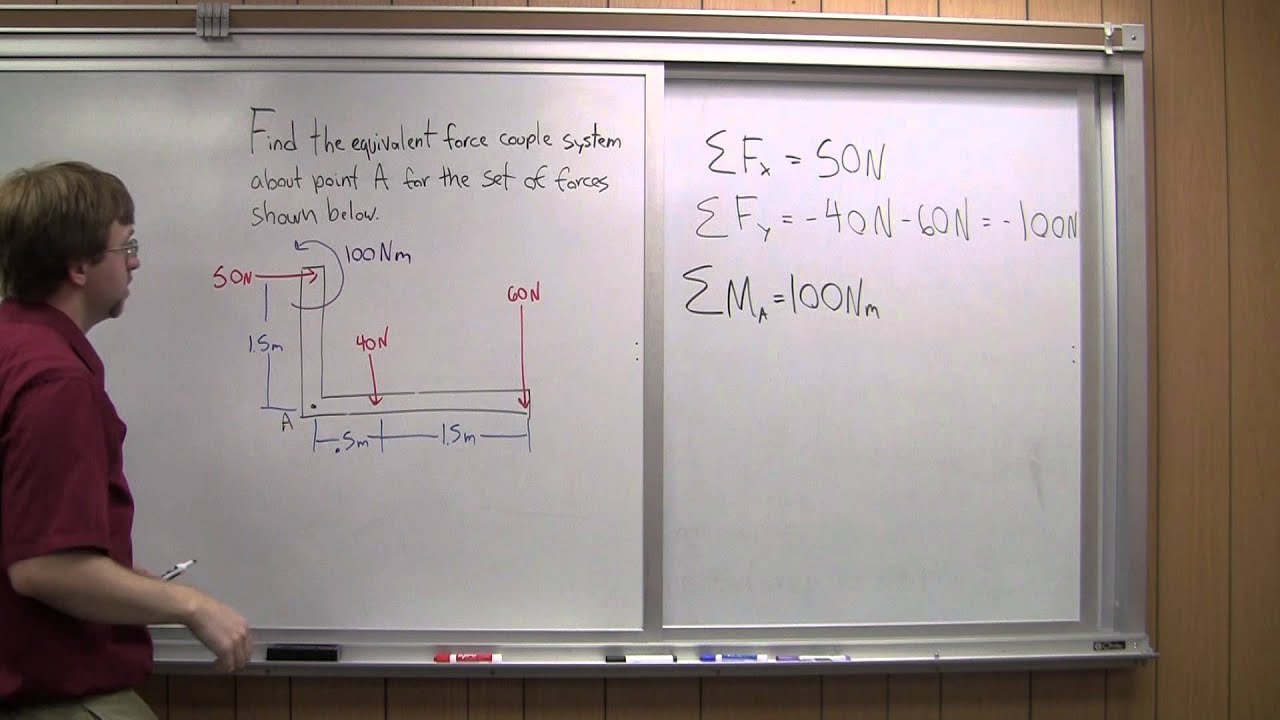 Find the equivalent force couple system
about point A for the set of forces
shown below.
100Nm
50N
60N
1.5m
40N
A
.5m
1.5m
ΣFx = 50N
ΣFy = -40N - 60N = -100N
ΣMA = 100Nm